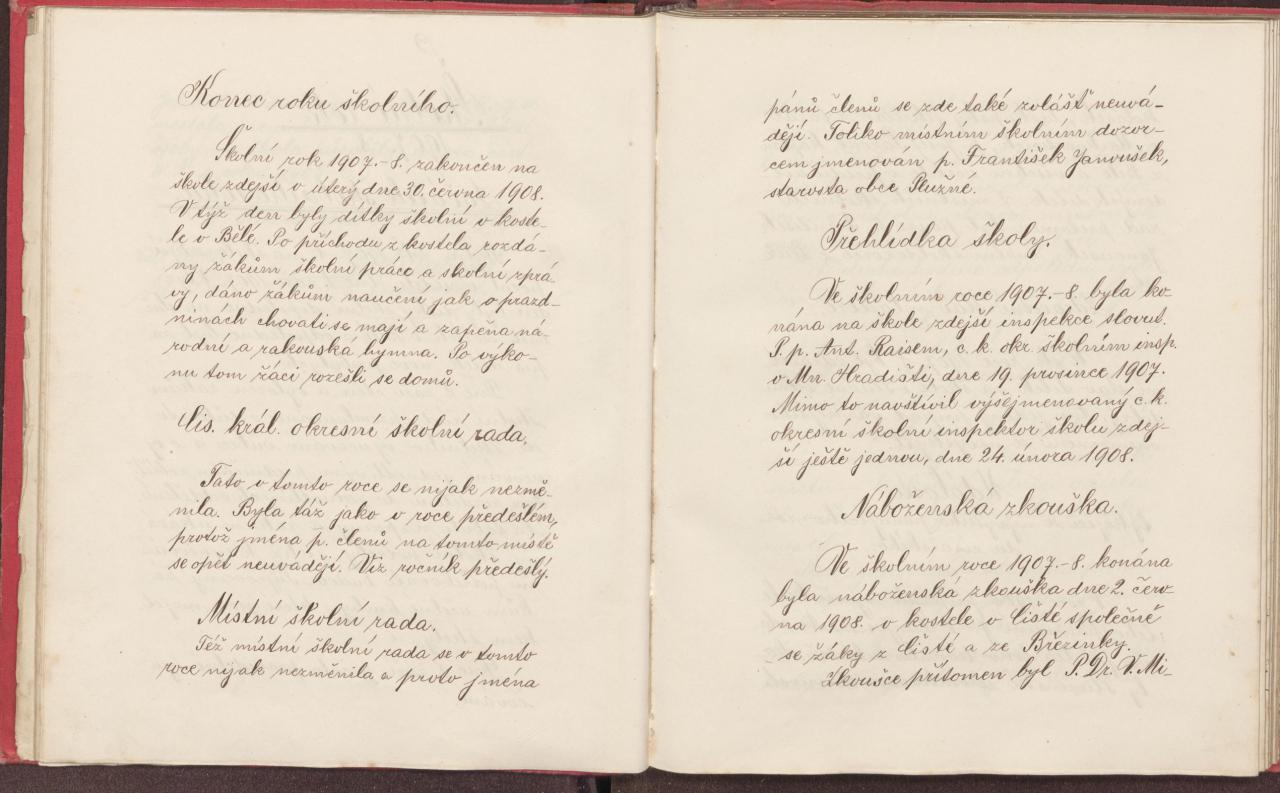 Konec roku školního.
Školní rok 1907.-8. zakončen na
škole zdejší v úterý dne 30. června 1908.
V týž den byly dítky školní v koste-
le v Bělé. Po příchodu z kostela rozdá-
ny žákům školní práce a školní zprá-
vy, dáno žákům naučení jak o prazd-
ninách chovati se mají a zapěna ná-
rodní a rakouská hymna. Po výko-
nu tom žáci rozešli se domů.
Cis. král. okresní školní rada.
Tato v tomto roce se nijak nezmě-
nila. Byla táž jako v roce předešlém,
protož jména p. členů na tomto místě
se opět neuvádějí. Viz ročník předešlý.
Místní školní rada.
Též místní školní rada se v tomto
roce nijak nezměnila a proto jména
pánů členů se zde také zvlášť neuvá-
dějí. Toliko místním školním dozor-
cem jmenován p. František Janoušek,
starosta obce Plužné.
Přehlídka školy.
Ve školním roce 1907.-8. byla ko-
nána na škole zdejší inspekce slovut.
P. p. Ant. Raisem, c. k. okr. školním insp.
v Mn. Hradišti, dne 19. prosince 1907.
Mimo to navštívil výšejmenovaný c. k.
okresní školní inspektor školu zdej-
ší ještě jednou, dne 24. února 1908.
Náboženská zkouška.
Ve školním roce 1907.-8. konána
byla náboženská zkouška dne 2. červ-
na 1908. v kostele v Čisté společně
se žáky z Čisté a ze Březinky.
Zkoušce přítomen byl P. Dr. V. Mi-